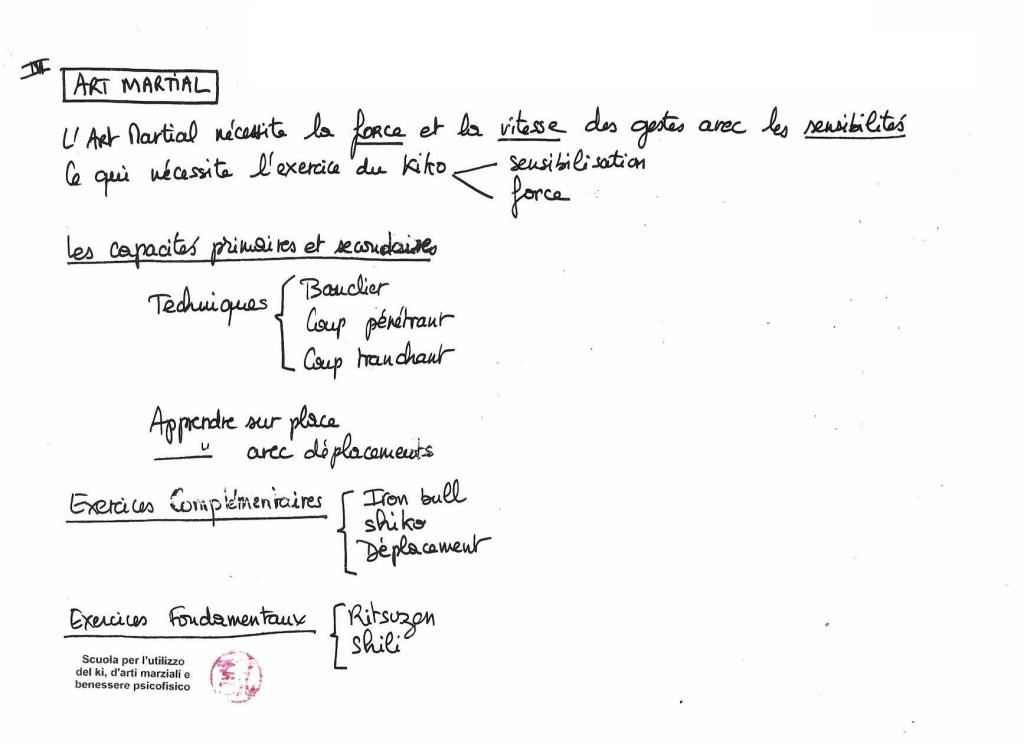 III
ART MARTIAL
L'Art Martial nécessite la force et la vitesse des gestes avec les sensibilités
Ce qui nécessite l'exercice du Kiko
sensibilisation
force
Les capacités primaires et secondaires
Techniques
Bouclier
Coup pénétrant
Coup tranchant
Apprendre sur place
" avec déplacements
Exercices Complémentaires
Iron bull
shiko
Déplacement
Exercices Fondamentaux
Ritsuzen
shili
Scuola per l'utilizzo
del ki, d'arti marziali e
benessere psicofisico